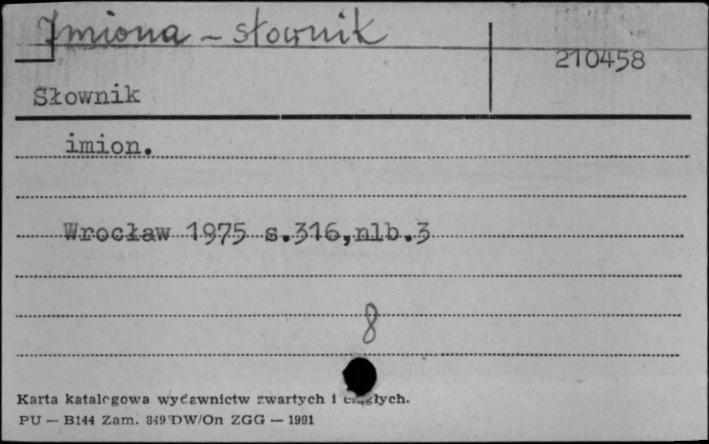 Imiona - słownik
210458
Słownik
imion.
Wrocław 1975 s.316,nlb.3
8
Karta katalogowa wydawnictw zwartych i ciągłych.
PU — B144 Zam. 849 DW/On ZGG — 1991